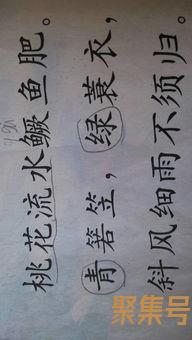 桃花流水鳜鱼肥。
青箬笠，绿蓑衣，
斜风细雨不须归。
聚集号